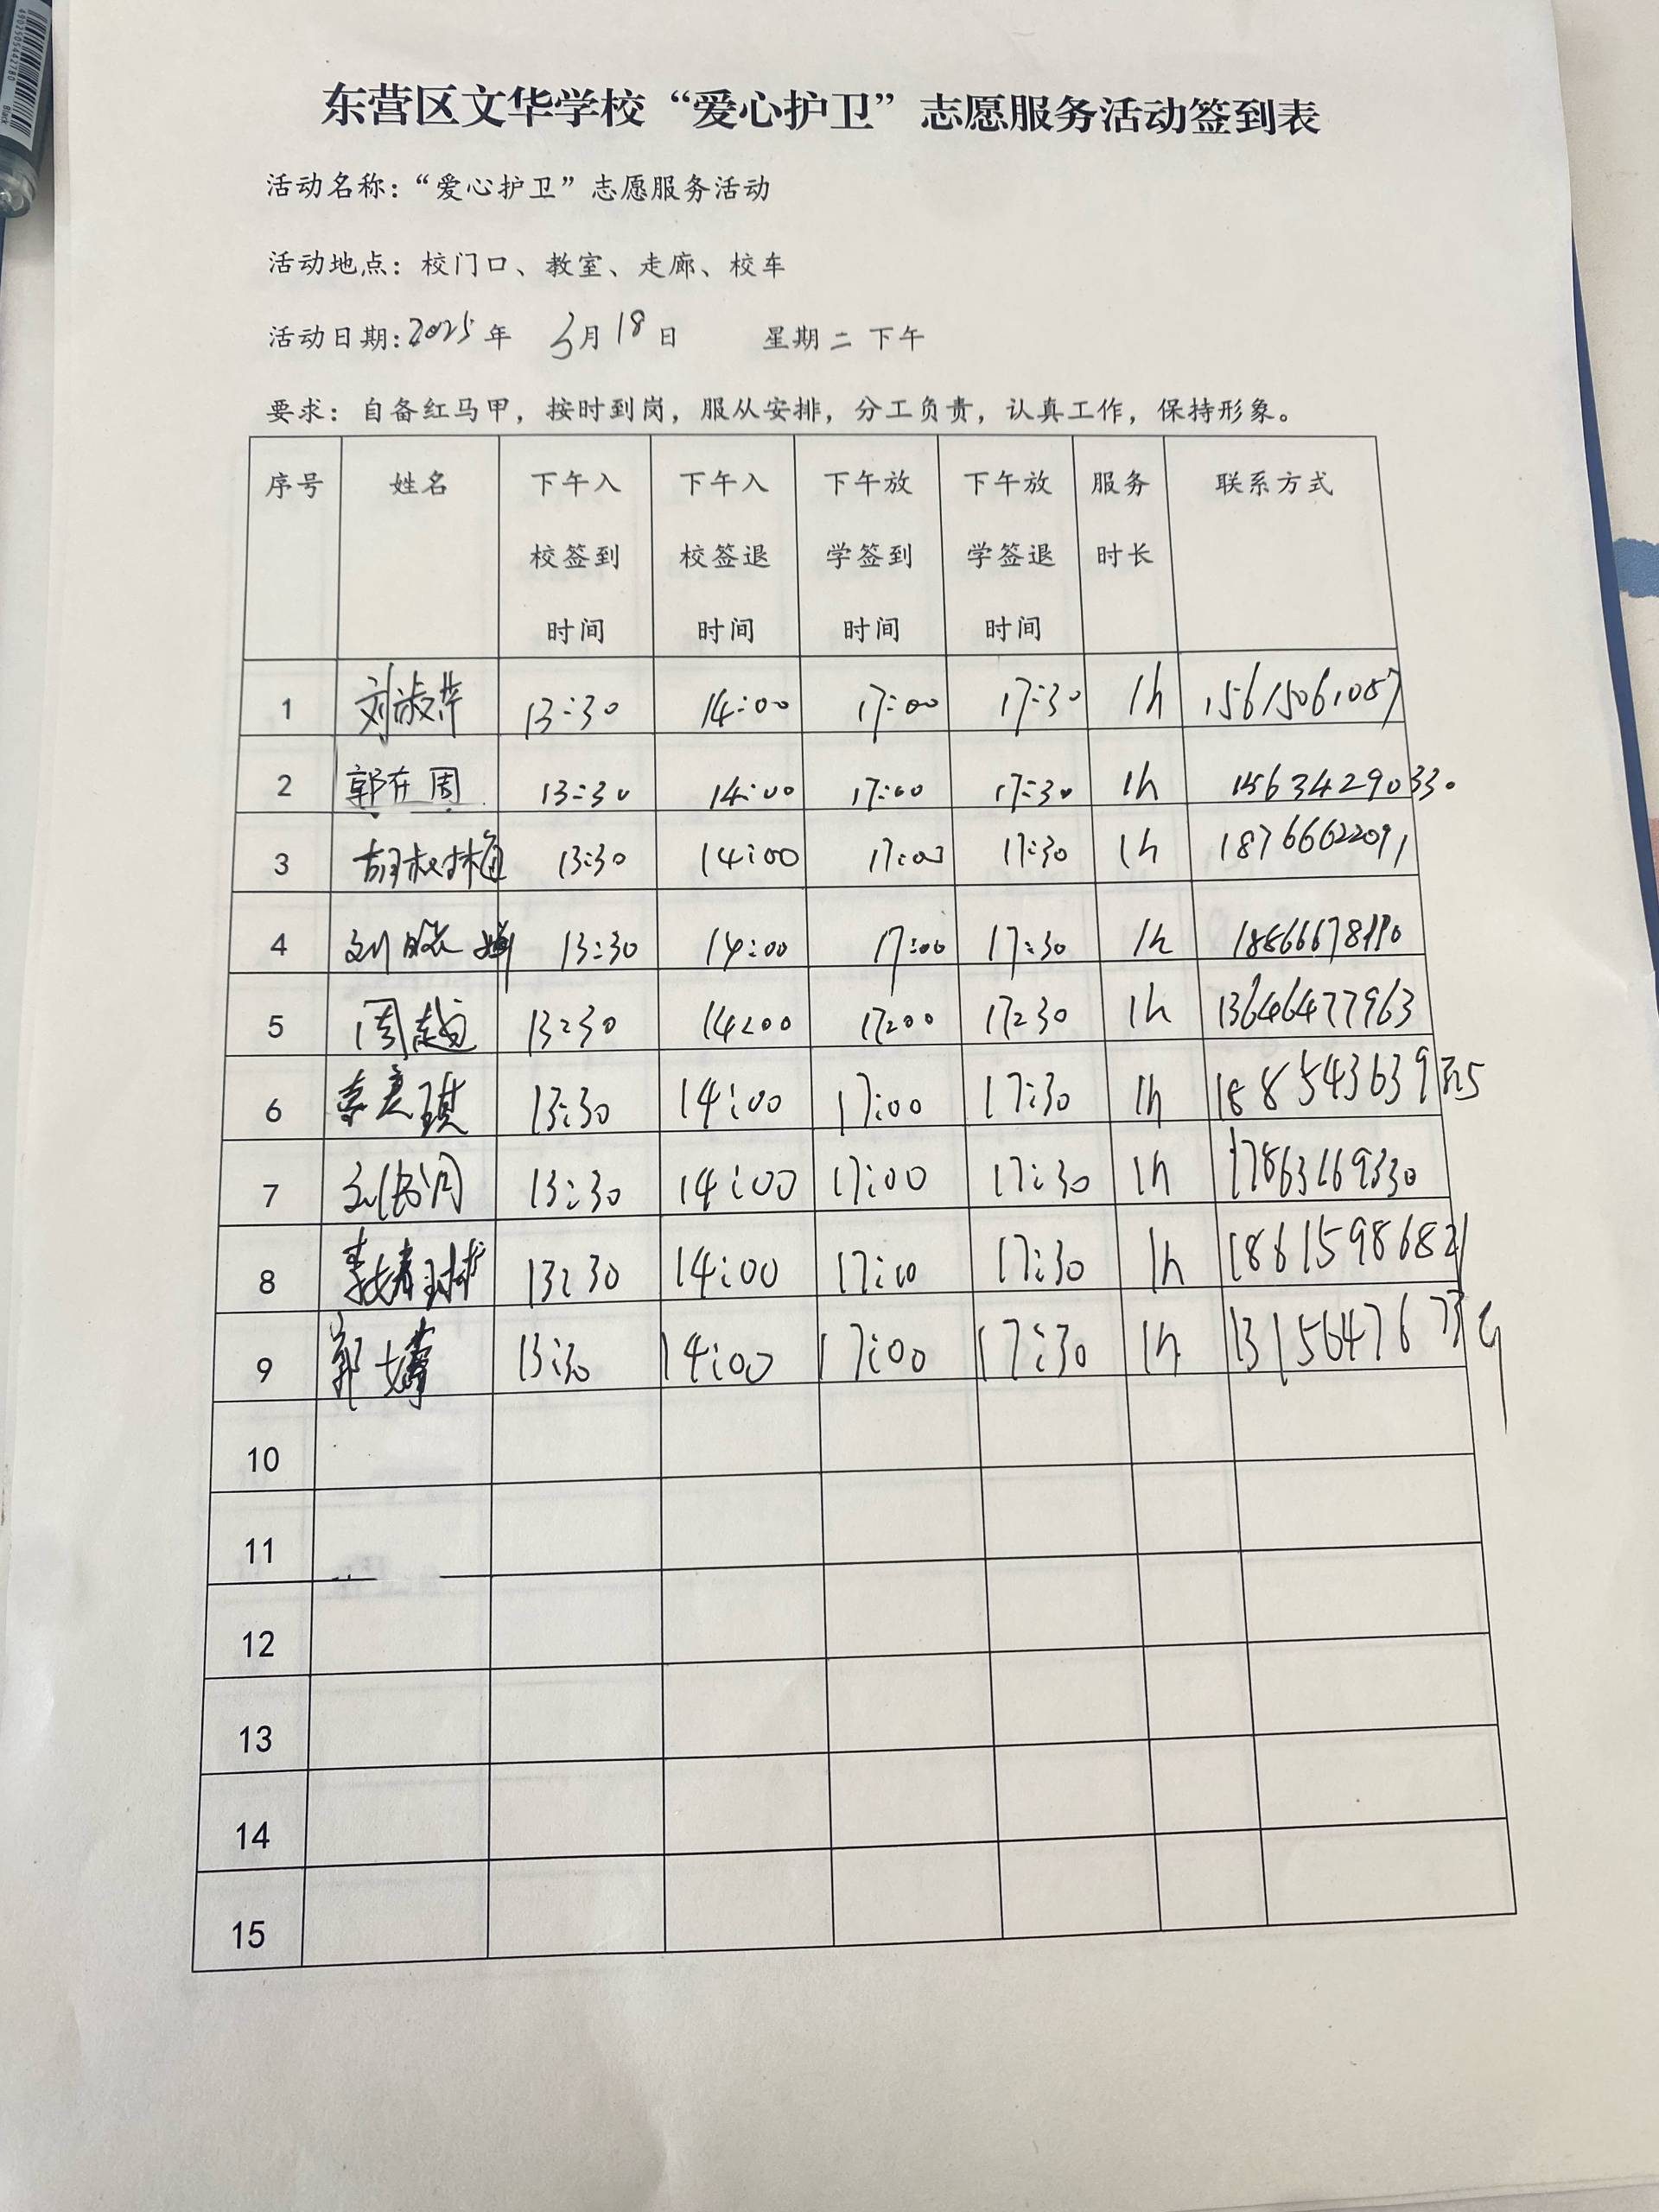 东营区文华学校“爱心护卫”志愿服务活动签到表
活动名称：“爱心护卫”志愿服务活动
活动地点：校门口、教室、走廊、校车
活动日期：2025年 3月18日 星期二下午
要求：自备红马甲，按时到岗，服从安排，分工负责，认真工作，保持形象。
序号 姓名 下午入校签到时间 下午入校签退时间 下午放学签到时间 下午放学签退时间 服务时长 联系方式
1 刘淑萍 13:30 14:00 17:00 17:30 1h 15615061087
2 郭在周 13:30 14:00 17:00 17:30 1h 15634290330
3 13:30 14:00 17:00 17:30 1h 18766622091
4 13:30 14:00 17:00 17:30 1h
5 周超 13:30 14:00 17:00 17:30 1h 13646477963
6 13:30 14:00 17:00 17:30 1h
7 13:30 14:00 17:00 17:30 1h
8 13:30 14:00 17:00 17:30 1h 18615986821
9 郭 13:30 14:00 17:00 17:30 1h
10
11
12
13
14
15